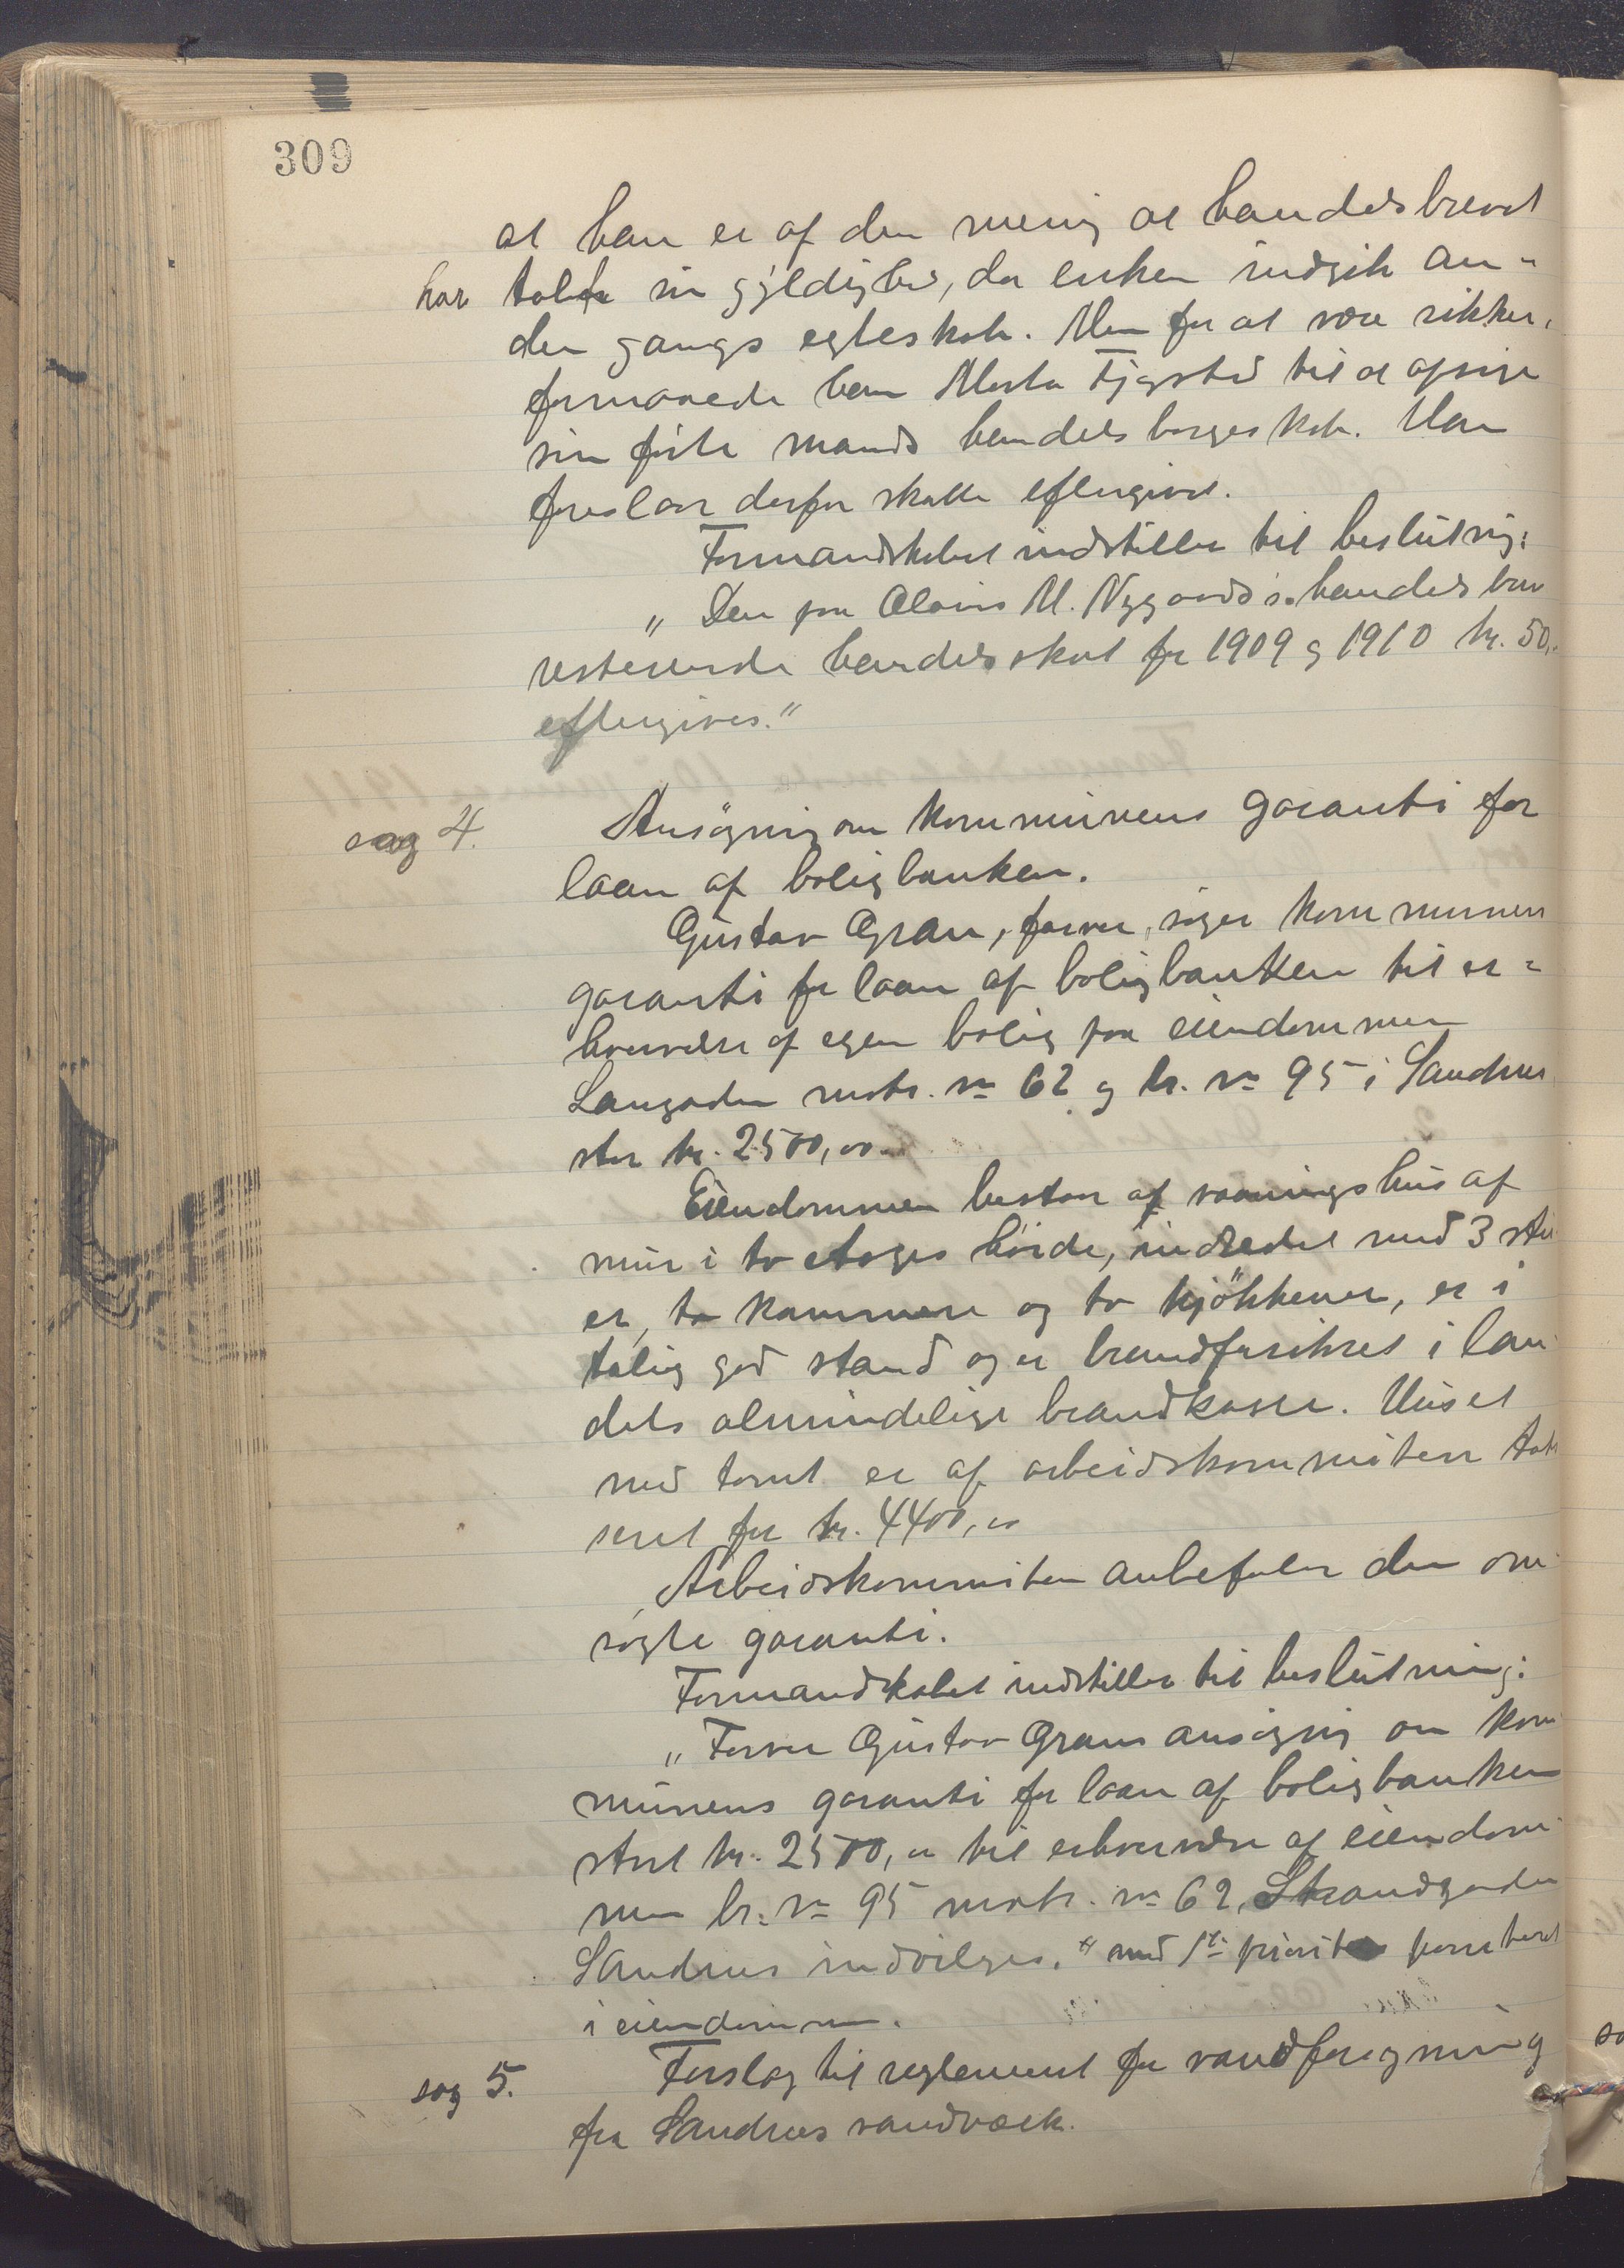 309
at han er af den mening at handelsbrevet
har tabt sin gyldighed, da enken indgik an-
den gangs egteskab. Men for at være sikker,
formaaede han Marta Fjogstad til at opsige
sin første mands handelsborgerskab. Han
foreslaar derfor skatten eftergivet.
Formandskabet indstiller til beslutning:
"Den paa M. Nygaards handelsbrev
resterende handelsskat for 1909 og 1910 kr. 50,-
eftergives."
sag 4. Ansøgning om kommunens garanti for
laan af boligbanken.
Gustav Gran, farver, søger kommunens
garanti for laan af boligbanken til er-
hvervelse af egen bolig paa eiendommen
Langgaden matr. no 62 og br. no 95 i Sandnes
stor kr. 2500,00.
Eiendommen bestaar af vaaningshus af
mur i to etages høide, indredet med 3 stu
er, to kammere og to kjøkkener, er i
talig god stand og er brandforsikret i lan
dets almindelige brandkasse. Huset
med tomt er af arbeidskommiteen tak
seret for kr. 4400,00
Arbeidskommiteen anbefaler den om
søgte garanti.
Formandskabet indstiller til beslutning:
"Farver Gustav Grans ansøgning om kom
munens garanti for laan af boligbanken
stort kr. 2500,00 til erhvervelse af eiendom
men br. no 95 matr. no 62, Strandgaden
Sandnes indvilges." med 1ste prioritets panteret
i eiendommen.
sag 5. Forslag til reglement for vandforsyning
fra Sandnes vandværk.